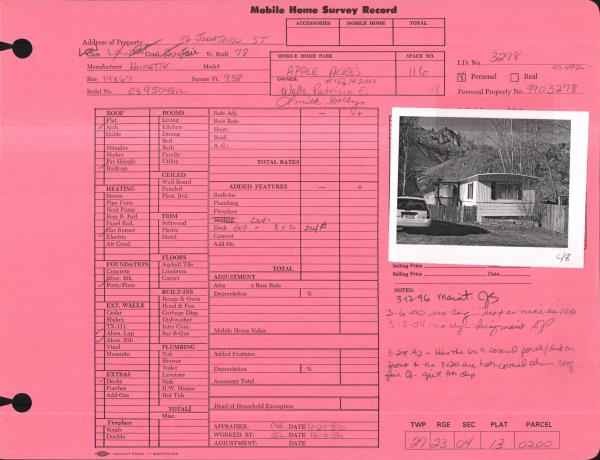 Mobile Home Survey Record
ACCESSORIES MOBILE HOME TOTAL
Address of Property 116 JONATHON ST
Class Low Cond. Fair Yr. Built 78
Manufacturer Homette Model
Size 14x67 Square Ft. 938
Serial No. 03950481L
MOBILE HOME PARK SPACE NO.
APPLE ACRES 116
OWNER:
Wells, Patricia E.
I.D. No. 3278
Personal Real
Personal Property No. 9903278
ROOF
Flat
Arch
Gable
Shingles
Shakes
Fat Shingle
Built-up
HEATING
Stoves
Pipe Furn.
Heat Pump
Base B. Rad.
Panel Rad.
Gas Burner
Electric
Air Cond.
FOUNDATION
Concrete
Conc. Blk.
Posts/Piers
EXT. WALLS
Cedar
Shakes
TX-111
Alum. Lap
Alum. Rib
Vinyl
Masonite
EXTRAS
Decks
Porches
Add-Ons
Fireplace
Single
Double
ROOMS
Living
Kitchen
Dining
Bed
Bath
Family
Utility
CEILED
Wall Board
Paneled
Plast. Brd.
TRIM
Softwood
Plastic
Metal
FLOORS
Asphalt Tile
Linoleum
Carpet
BUILT-INS
Range & Oven
Hood & Fan
Garbage Disp.
Dishwasher
Inter Com.
Bar-B-Que
PLUMBING
Tub
Shower
Toilet
Lavatory
Sink
H.W. Heater
Hot Tub
TOTAL
Misc.
Rate Adj. — +
Base Rate
Heat:
Roof:
A. C.:
TOTAL RATES
ADDED FEATURES — +
Built-ins
Plumbing
Fireplace
Skirted
Deck 6x9 + 8x20 214#
Carport
Add On
TOTAL
ADJUSTMENT
Area x Base Rate
Depreciation %
Mobile Home Value
Added Features
Depreciation %
Accessory Total
Head of Household Exemption
APPRAISER: DATE 11-25-86
WORKED BY: DATE 12-2-86
ADJUSTMENT: DATE
L/8
Selling Price
Selling Price
NOTES:
3-12-96 Maint.
3-6-00 no chg
3-2-04 no chg
TWP RGE SEC PLAT PARCEL
27 23 04 13 0200